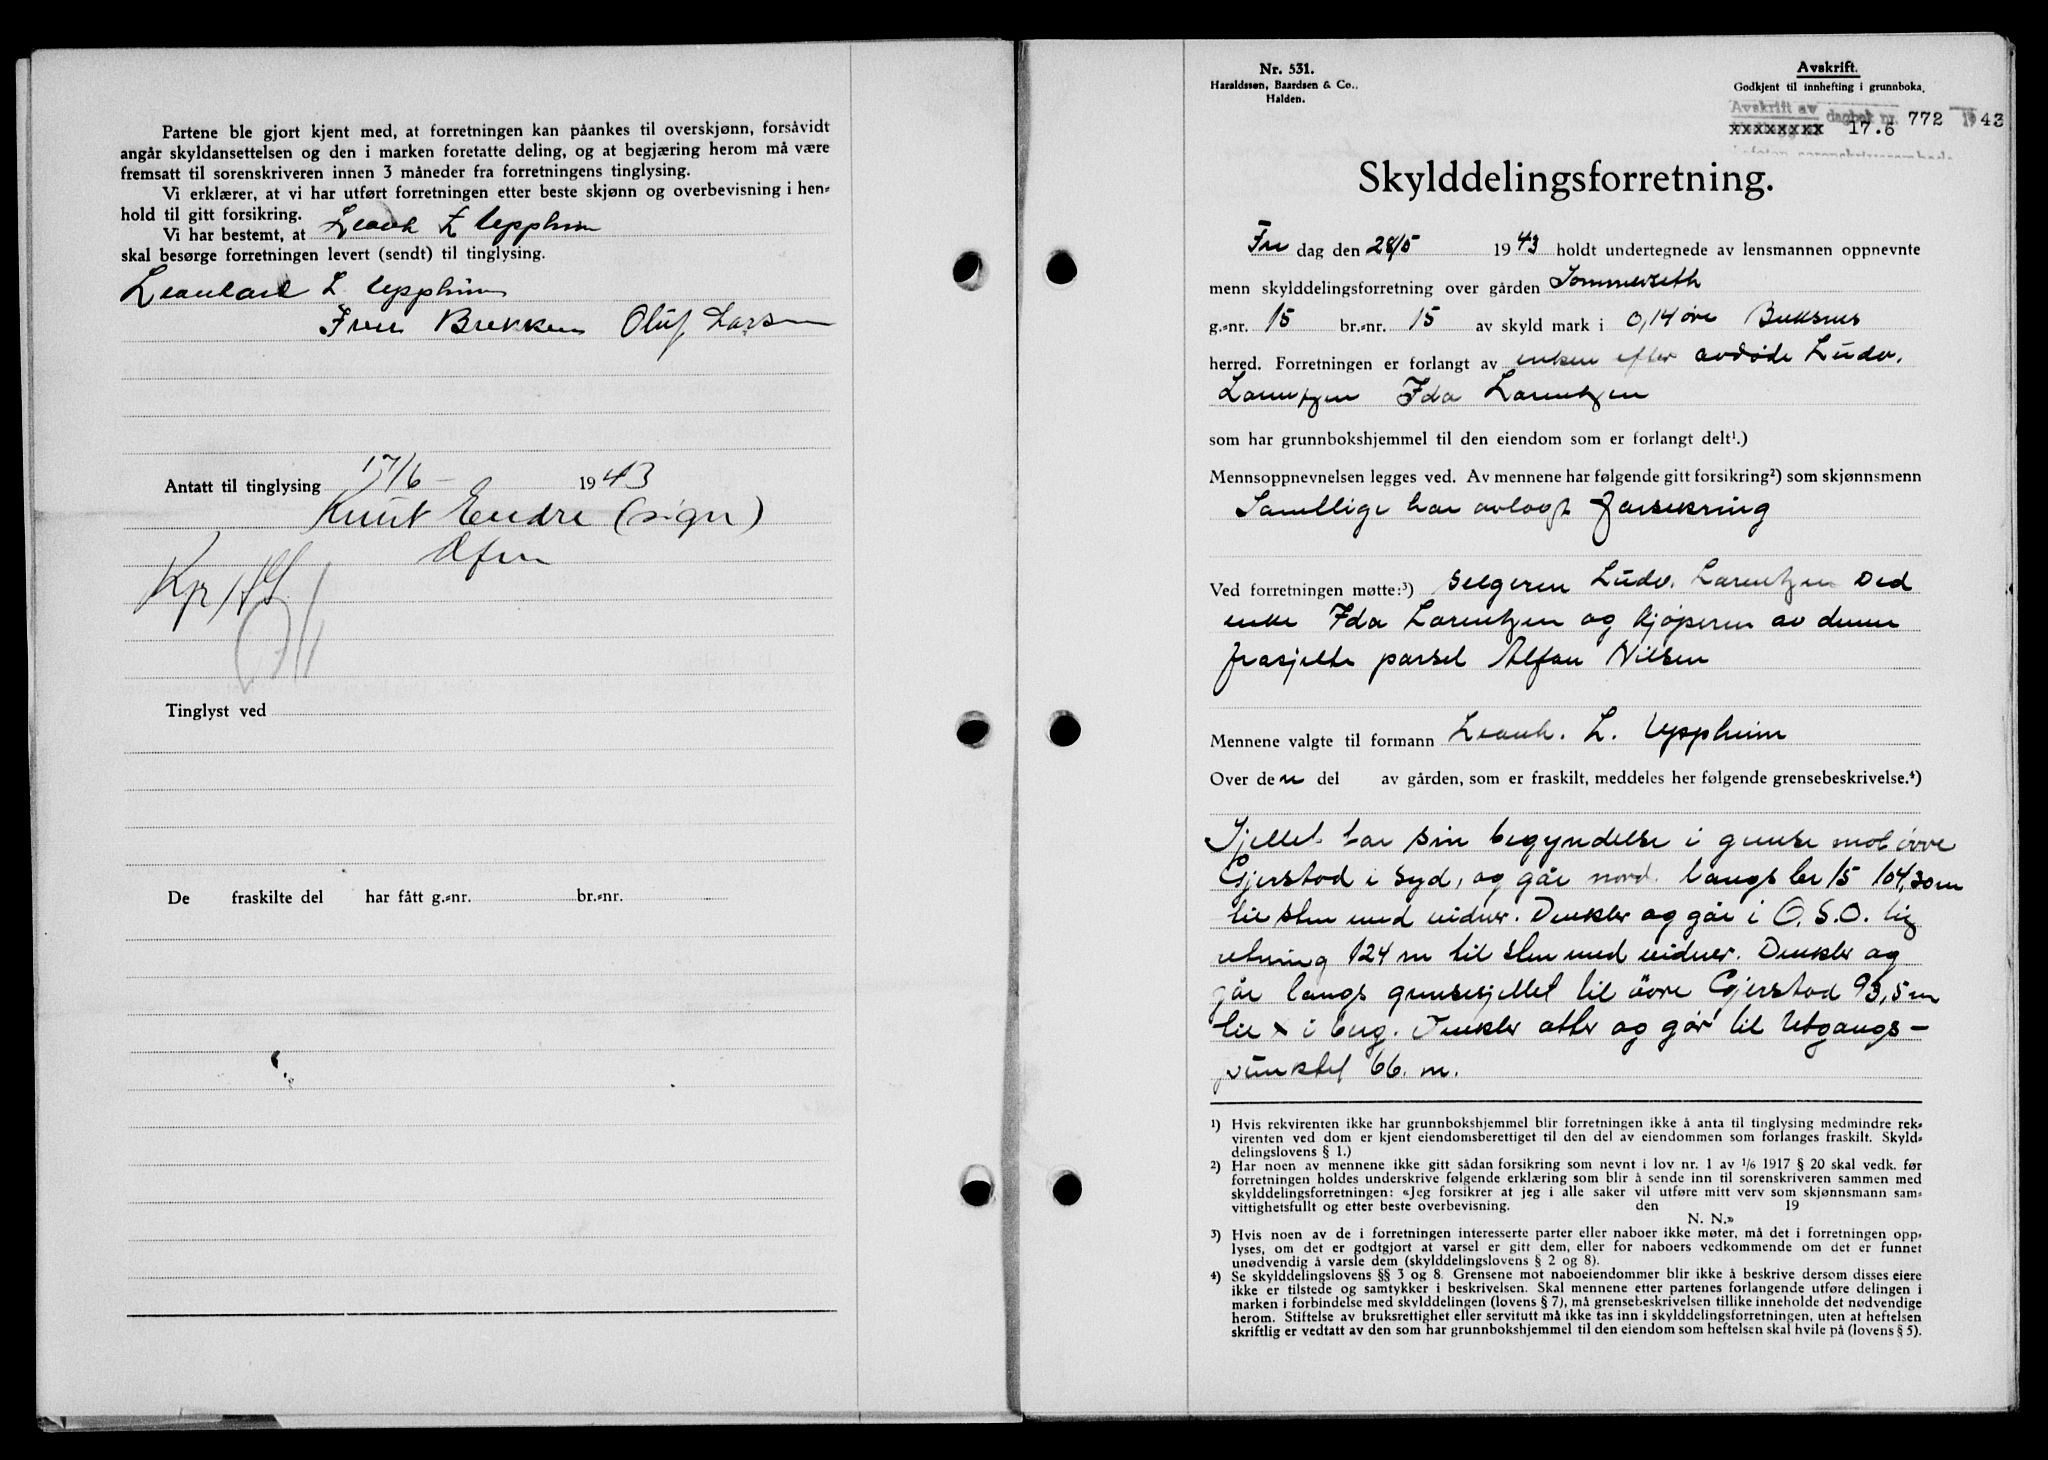 Partene ble gjort kjent med, at forretningen kan påankes til overskjønn, forsåvidt
angår skyldansettelsen og den i marken foretatte deling, og at begjæring herom må være
fremsatt til sorenskriveren innen 3 måneder fra forretningens tinglysing.
Vi erklærer, at vi har utført forretningen etter beste skjønn og overbevisning i hen-
hold til gitt forsikring.
Vi har bestemt, at Leonh L Uppheim
skal besørge forretningen levert (sendt) til tinglysing.
Leonhard L Uppheim
Brekken Oluf Larsen
Antatt til tinglysing 17/6 - 1943
Knut Endre (sign)
Tinglyst ved
De fraskilte del har fått g.-nr. br.-nr.
Nr. 531.
Haraldssøn, Baardsen & Co.,
Halden.
Avskrift.
Godkjent til innhefting i grunnboka.
Avskrift av dagbok nr. 772 1943
xxxxxxxx 17.6
Skylddelingsforretning.
Fre dag den 28/5 1943 holdt undertegnede av lensmannen oppnevnte
menn skylddelingsforretning over gården Sommerseth
g.-nr. 15 br.-nr. 15 av skyld mark i 0,14 øre Buksnes
herred. Forretningen er forlangt av enken efter avdøde Ludv.
Lorentzen Ida Lorentzen
som har grunnbokshjemmel til den eiendom som er forlangt delt¹.)
Mennsoppnevnelsen legges ved. Av mennene har følgende gitt forsikring²) som skjønnsmenn
Samtlige har avlagt forsikring
Ved forretningen møtte:³) selgeren Ludv. Lorentzen ved
enke Ida Lorentzen og kjøperen av denne
fraskjelte parsel Alfon Nilsen
Mennene valgte til formann Leonh. L. Uppheim
Over den del av gården, som er fraskilt, meddeles her følgende grensebeskrivelse.⁴)
Skjellet har sin begyndelse i grense mot övre
Gjerstad i syd, og går nord langs br 15 104,30 m
til sten med vidner. Vinkler og går i O.S.O. lig
retning 124 m til sten med vidner. Vinkler og
går langs grensesjellet til övre Gjerstad 93,5 m
til x i berg. Vinkler atter og går til Utgangs-
punktet 66. m.
¹) Hvis rekvirenten ikke har grunnbokshjemmel blir forretningen ikke å anta til tinglysing medmindre rek-
virenten ved dom er kjent eiendomsberettiget til den del av eiendommen som forlanges fraskilt. Skyld-
delingslovens § 1.)
²) Har noen av mennene ikke gitt sådan forsikring som nevnt i lov nr. 1 av 1/6 1917 § 20 skal vedk. før
forretningen holdes underskrive følgende erklæring som blir å sende inn til sorenskriveren sammen med
skylddelingsforretningen: «Jeg forsikrer at jeg i alle saker vil utføre mitt verv som skjønnsmann sam-
vittighetsfullt og etter beste overbevisning. den 19
N. N.»
³) Hvis noen av de i forretningen interesserte parter eller naboer ikke møter, må det i forretningen opp-
lyses, om det er godtgjort at varsel er gitt dem, eller for naboers vedkommende om det er funnet
unødvendig å varsle dem (skylddelingslovens § 2 og 8).
⁴) Se skylddelingslovens §§ 3 og 8. Grensene mot naboeiendommer blir ikke å beskrive dersom disses eiere
ikke er tilstede og samtykker i beskrivelsen. Skal mennene etter partenes forlangende utføre delingen i
marken i forbindelse med skylddelingen (lovens § 7), må grensebeskrivelsen tillike inneholde det nødvendige
herom. Stiftelse av bruksrettighet eller servitutt må ikke tas inn i skylddelingsforretningen, uten at heftelsen
skriftlig er vedtatt av den som har grunnbokshjemmel til den eiendom som heftelsen skal hvile på (lovens § 5).